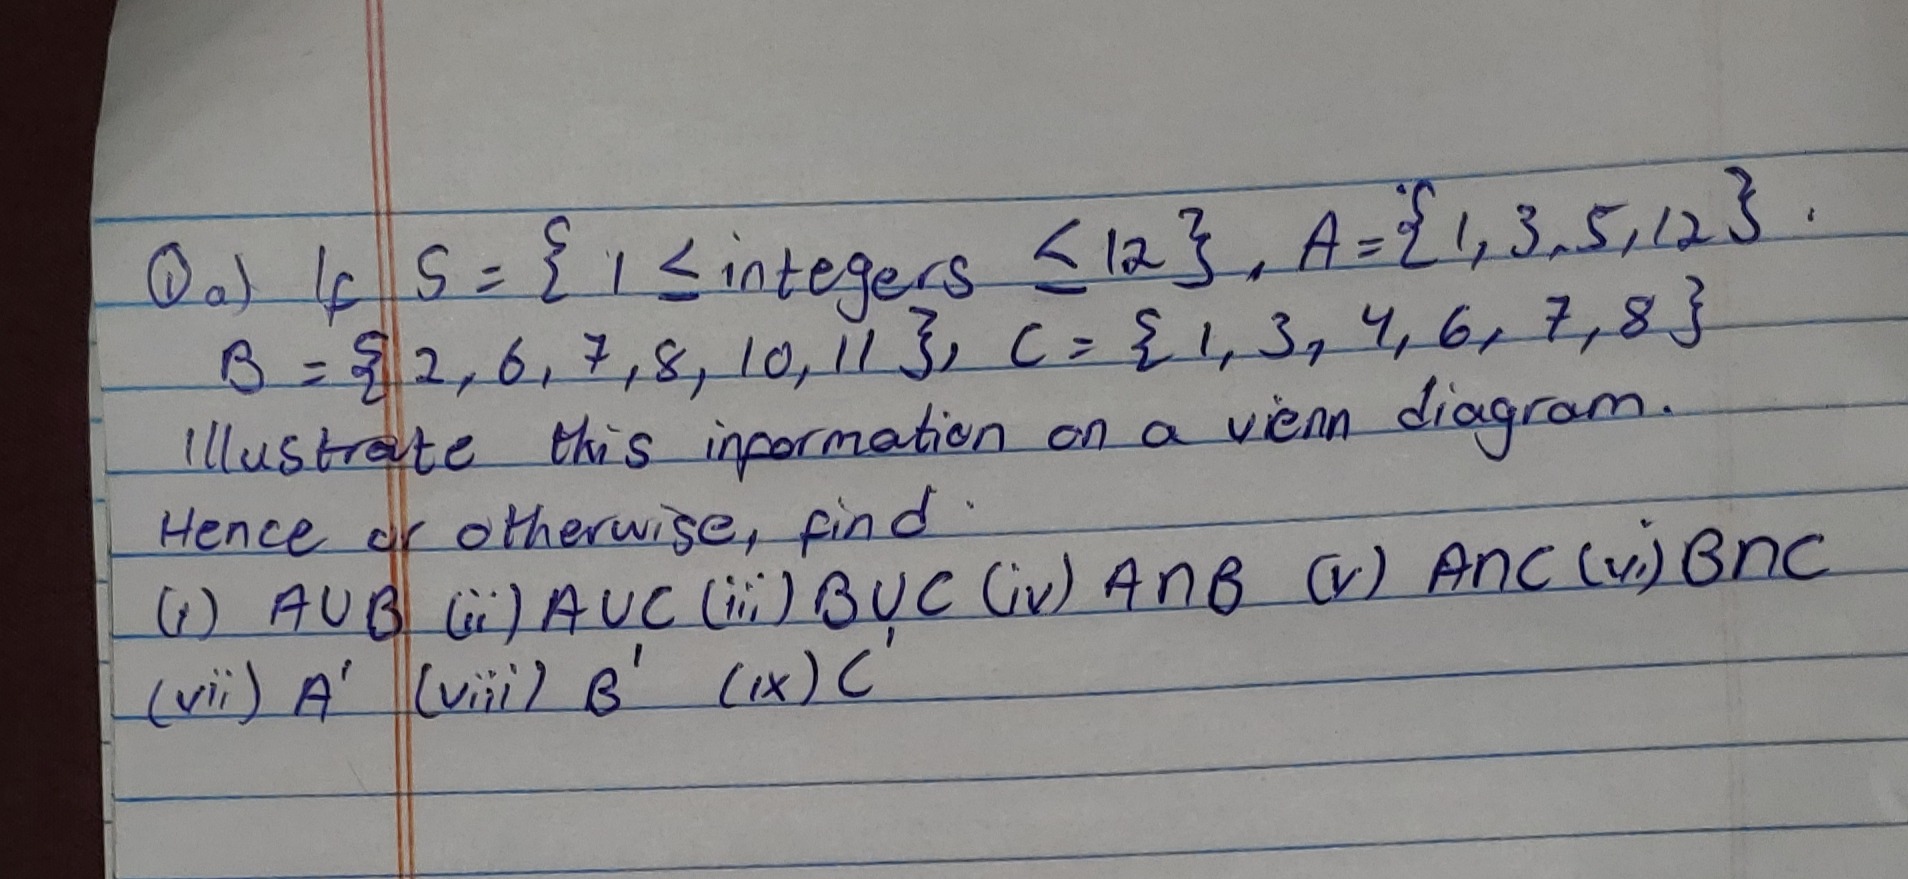 ① a) If S = { 1 ≤ integers ≤ 12 }, A = { 1, 3, 5, 12 }.
B = { 2, 6, 7, 8, 10, 11 }, C = { 1, 3, 4, 6, 7, 8 }
Illustrate this information on a vienn diagram.
Hence or otherwise, find
(i) A∪B (ii) A∪C (iii) B∪C (iv) A∩B (v) A∩C (vi) B∩C
(vii) A' (viii) B' (ix) C'